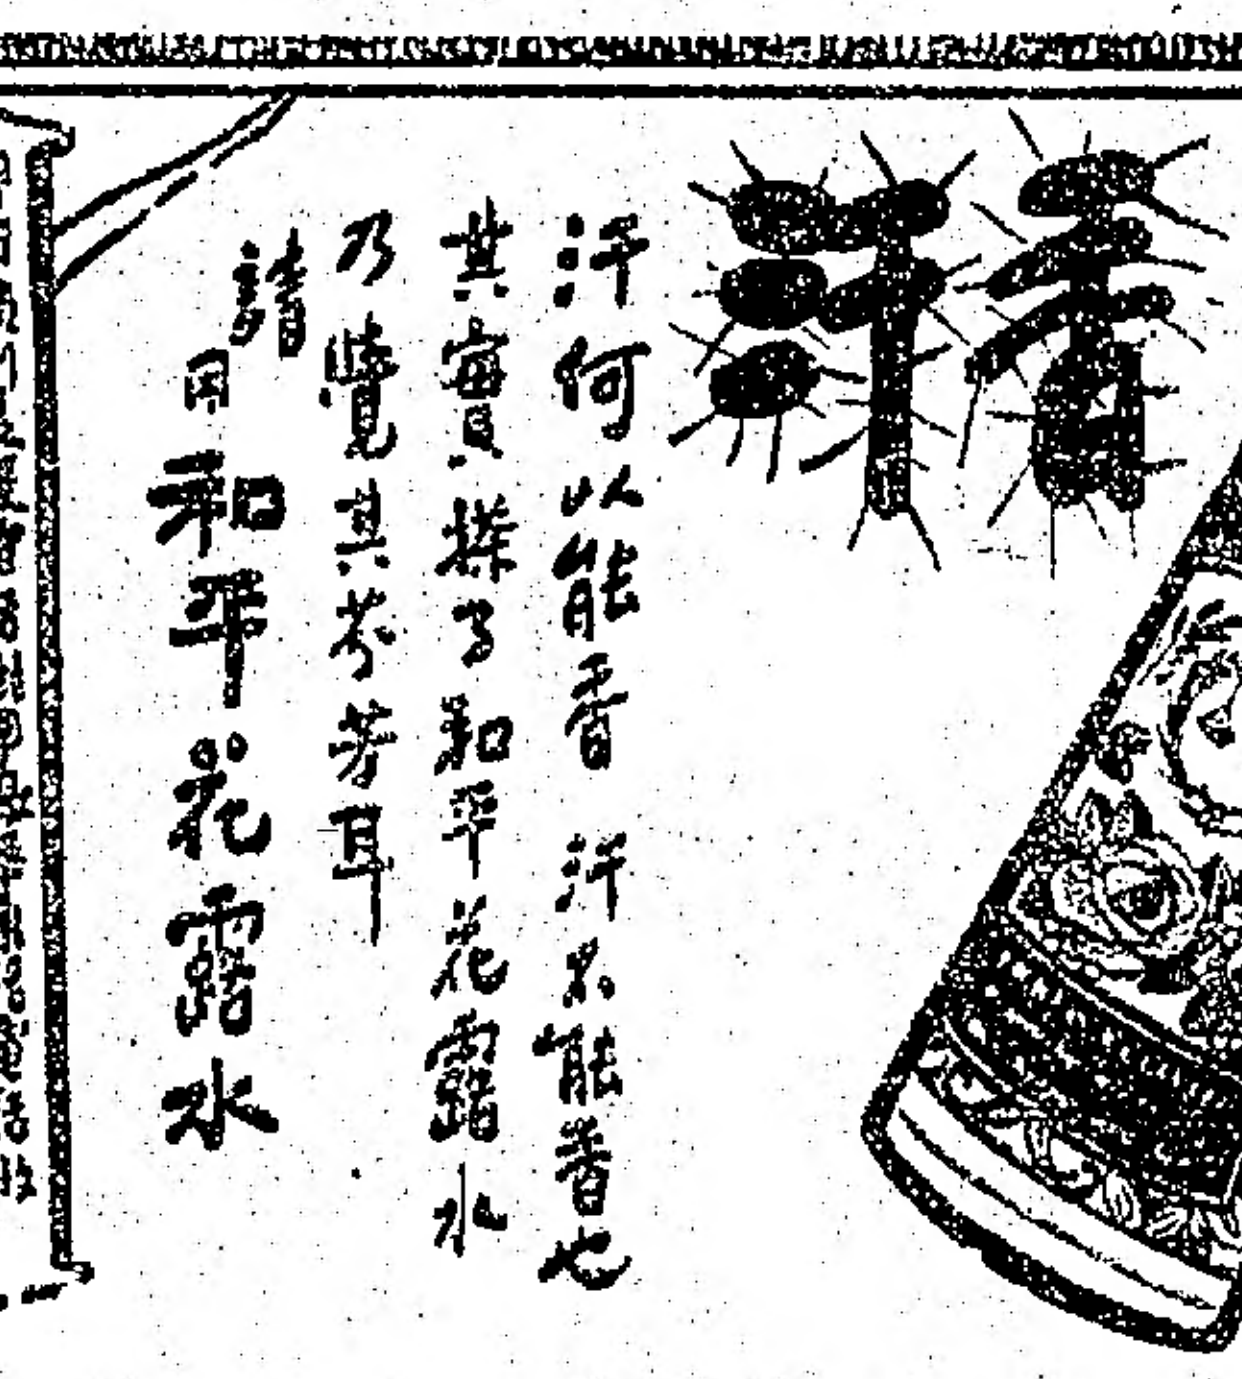 香汗
汗何以能香 汗不能香也
其實搽了和平花露水
乃覺其芬芳耳
請用和平花露水